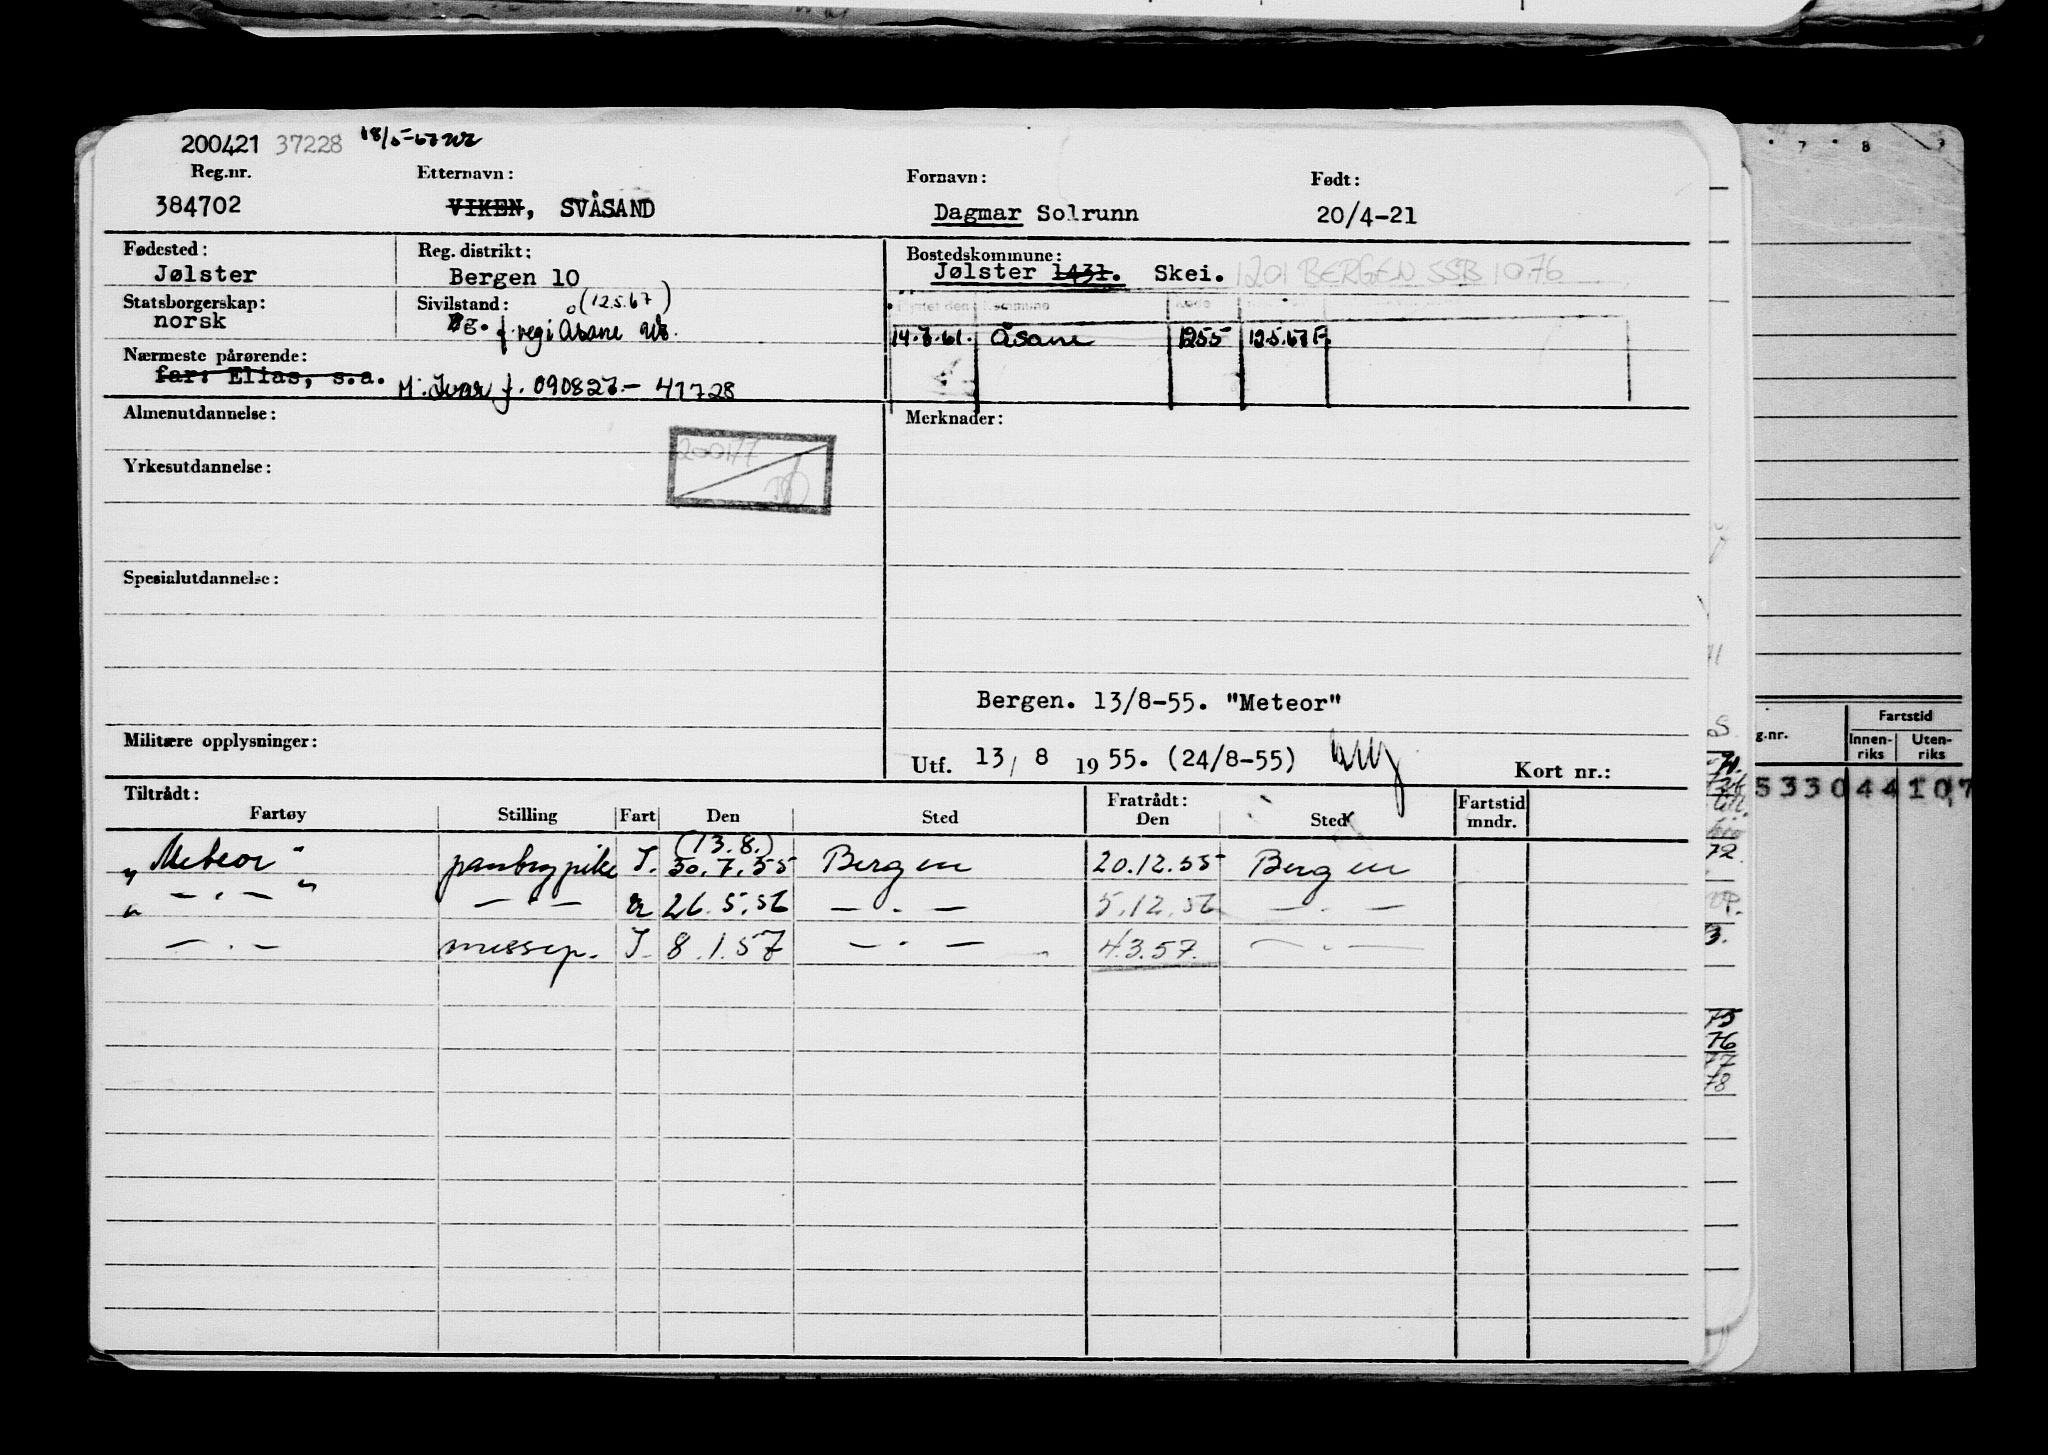 200421 37228 18/5-67
Reg.nr. Etternavn: Fornavn: Født:
384702 VIKEN, SVÅSAND Dagmar Solrunn 20/4-21
Fødested: Reg. distrikt: Bostedskommune:
Jølster Bergen 10 Jølster 1431. Skei. 1201 BERGEN SSB 1076
Statsborgerskap: Sivilstand: (12.5.67)
norsk g. f. reg i Åsane
14.7.61. Åsane 1255 12.5.67 F.
Nærmeste pårørende:
far: Elias, s.a. M. Ivar f. 090827 - 41728
Almenutdannelse: Merknader:
Yrkesutdannelse:
Spesialutdannelse:
Bergen. 13/8-55. "Meteor"
Militære opplysninger:
Utf. 13/ 8 1955. (24/8-55) Kort nr.:
Tiltrådt: Fratrådt:
Fartøy Stilling Fart Den Sted Den Sted Fartstid mndr.
(13.8.)
"Meteor" pantrypike I. 30.7.55 Bergen 20.12.55 Bergen
" — . — " — . — 26.5.56 — . — 5.12.56 — . —
— . — messep. I. 8.1.57 — . — 4.3.57. — . —
7 8
g.nr. Fartstid
Innen-riks Uten-riks
5330 44 107
72
3.
75
76
77
78